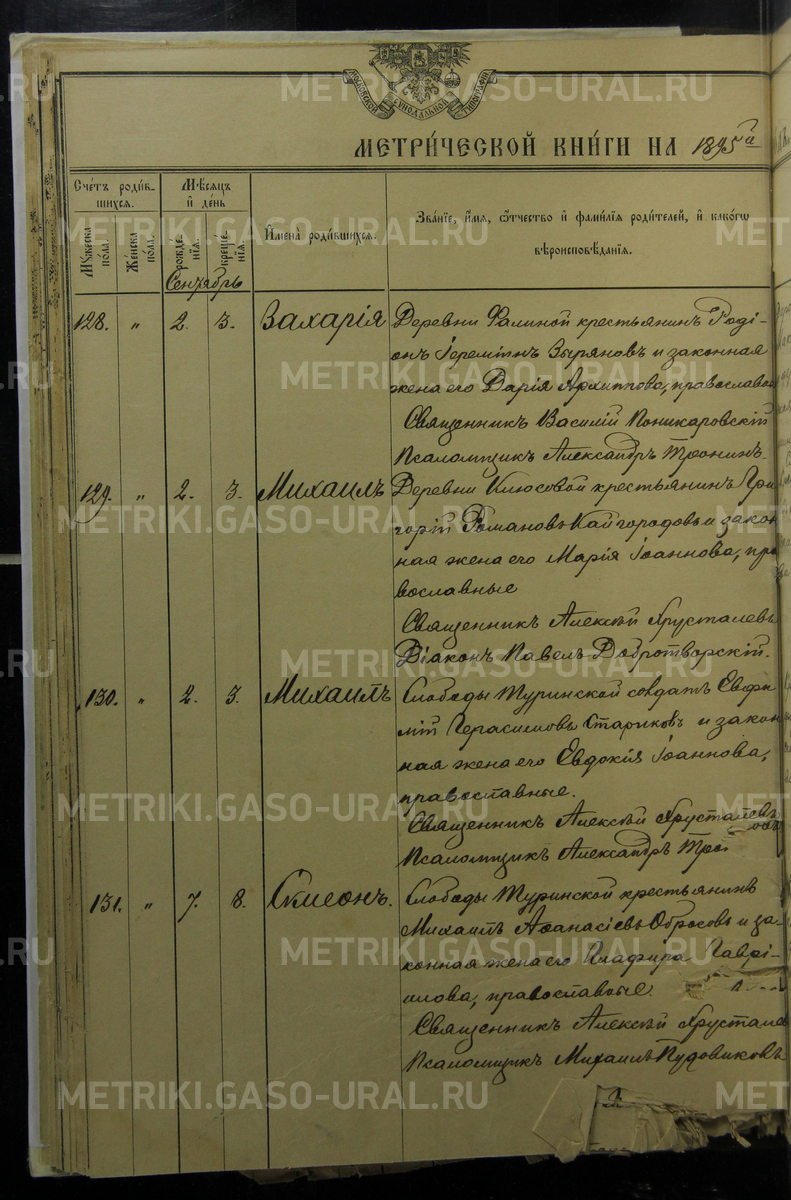 МОСКОВСКОЙ СѴНОДАЛЬНОЙ ТИПОГРАФІИ
МЕТРИ́ЧЕСКОЙ КНИ́ГИ НА 1895 й
Сче́тъ роди́в-
шихся.
Мѣсяцъ
и҆ де́нь
Мꙋжеска по́ла.
Же́нска по́ла.
рожде-
нія.
креще-
нія.
И҆мена̀ роди́вшихся.
Зва́ніе, и҆́мя, ѻ҆́тчество и҆ фами́лія роди́телей, и҆ како́гѡ
вѣроисповѣ́данія.
Сентябрь
128. „ 2. 3. Захарія Деревни Фалиной крестьянинъ Роді-
онъ Іереміинъ Зыряновъ и законная
жена его Дарія Архиппова, православ
Священникъ Василій Поникаровскій
Псаломщикъ Александръ Тронинъ.
129. „ 2. 3. Михаилъ Деревни Клюсовой крестьянинъ Гри
горій Романовъ Кайгородовъ и закон
ная жена его Марія Іоаннова, пра
вославные
Священникъ Алексѣй Хрусталевъ
Діаконъ Павелъ Добротворскій.
130. „ 2. 3. Михаилъ Слободы Туринской солдатъ Евфи
мій Герасимовъ Стариковъ и закон
ная жена его Евдокія Іоаннова,
православные.
Священникъ Алексѣй Хрусталевъ
Псаломщикъ Александръ Тро
131. „ 7. 8. Симеонъ. Слободы Туринской крестьянинъ
Михаилъ Аѳанасіевъ Обросовъ и за-
конная жена его Глафира Гаврі-
илова, православные.
Священникъ Алексѣй Хрустале
Псаломщикъ Михаилъ Пудовиковъ
METRIKI.GASO-URAL.RU